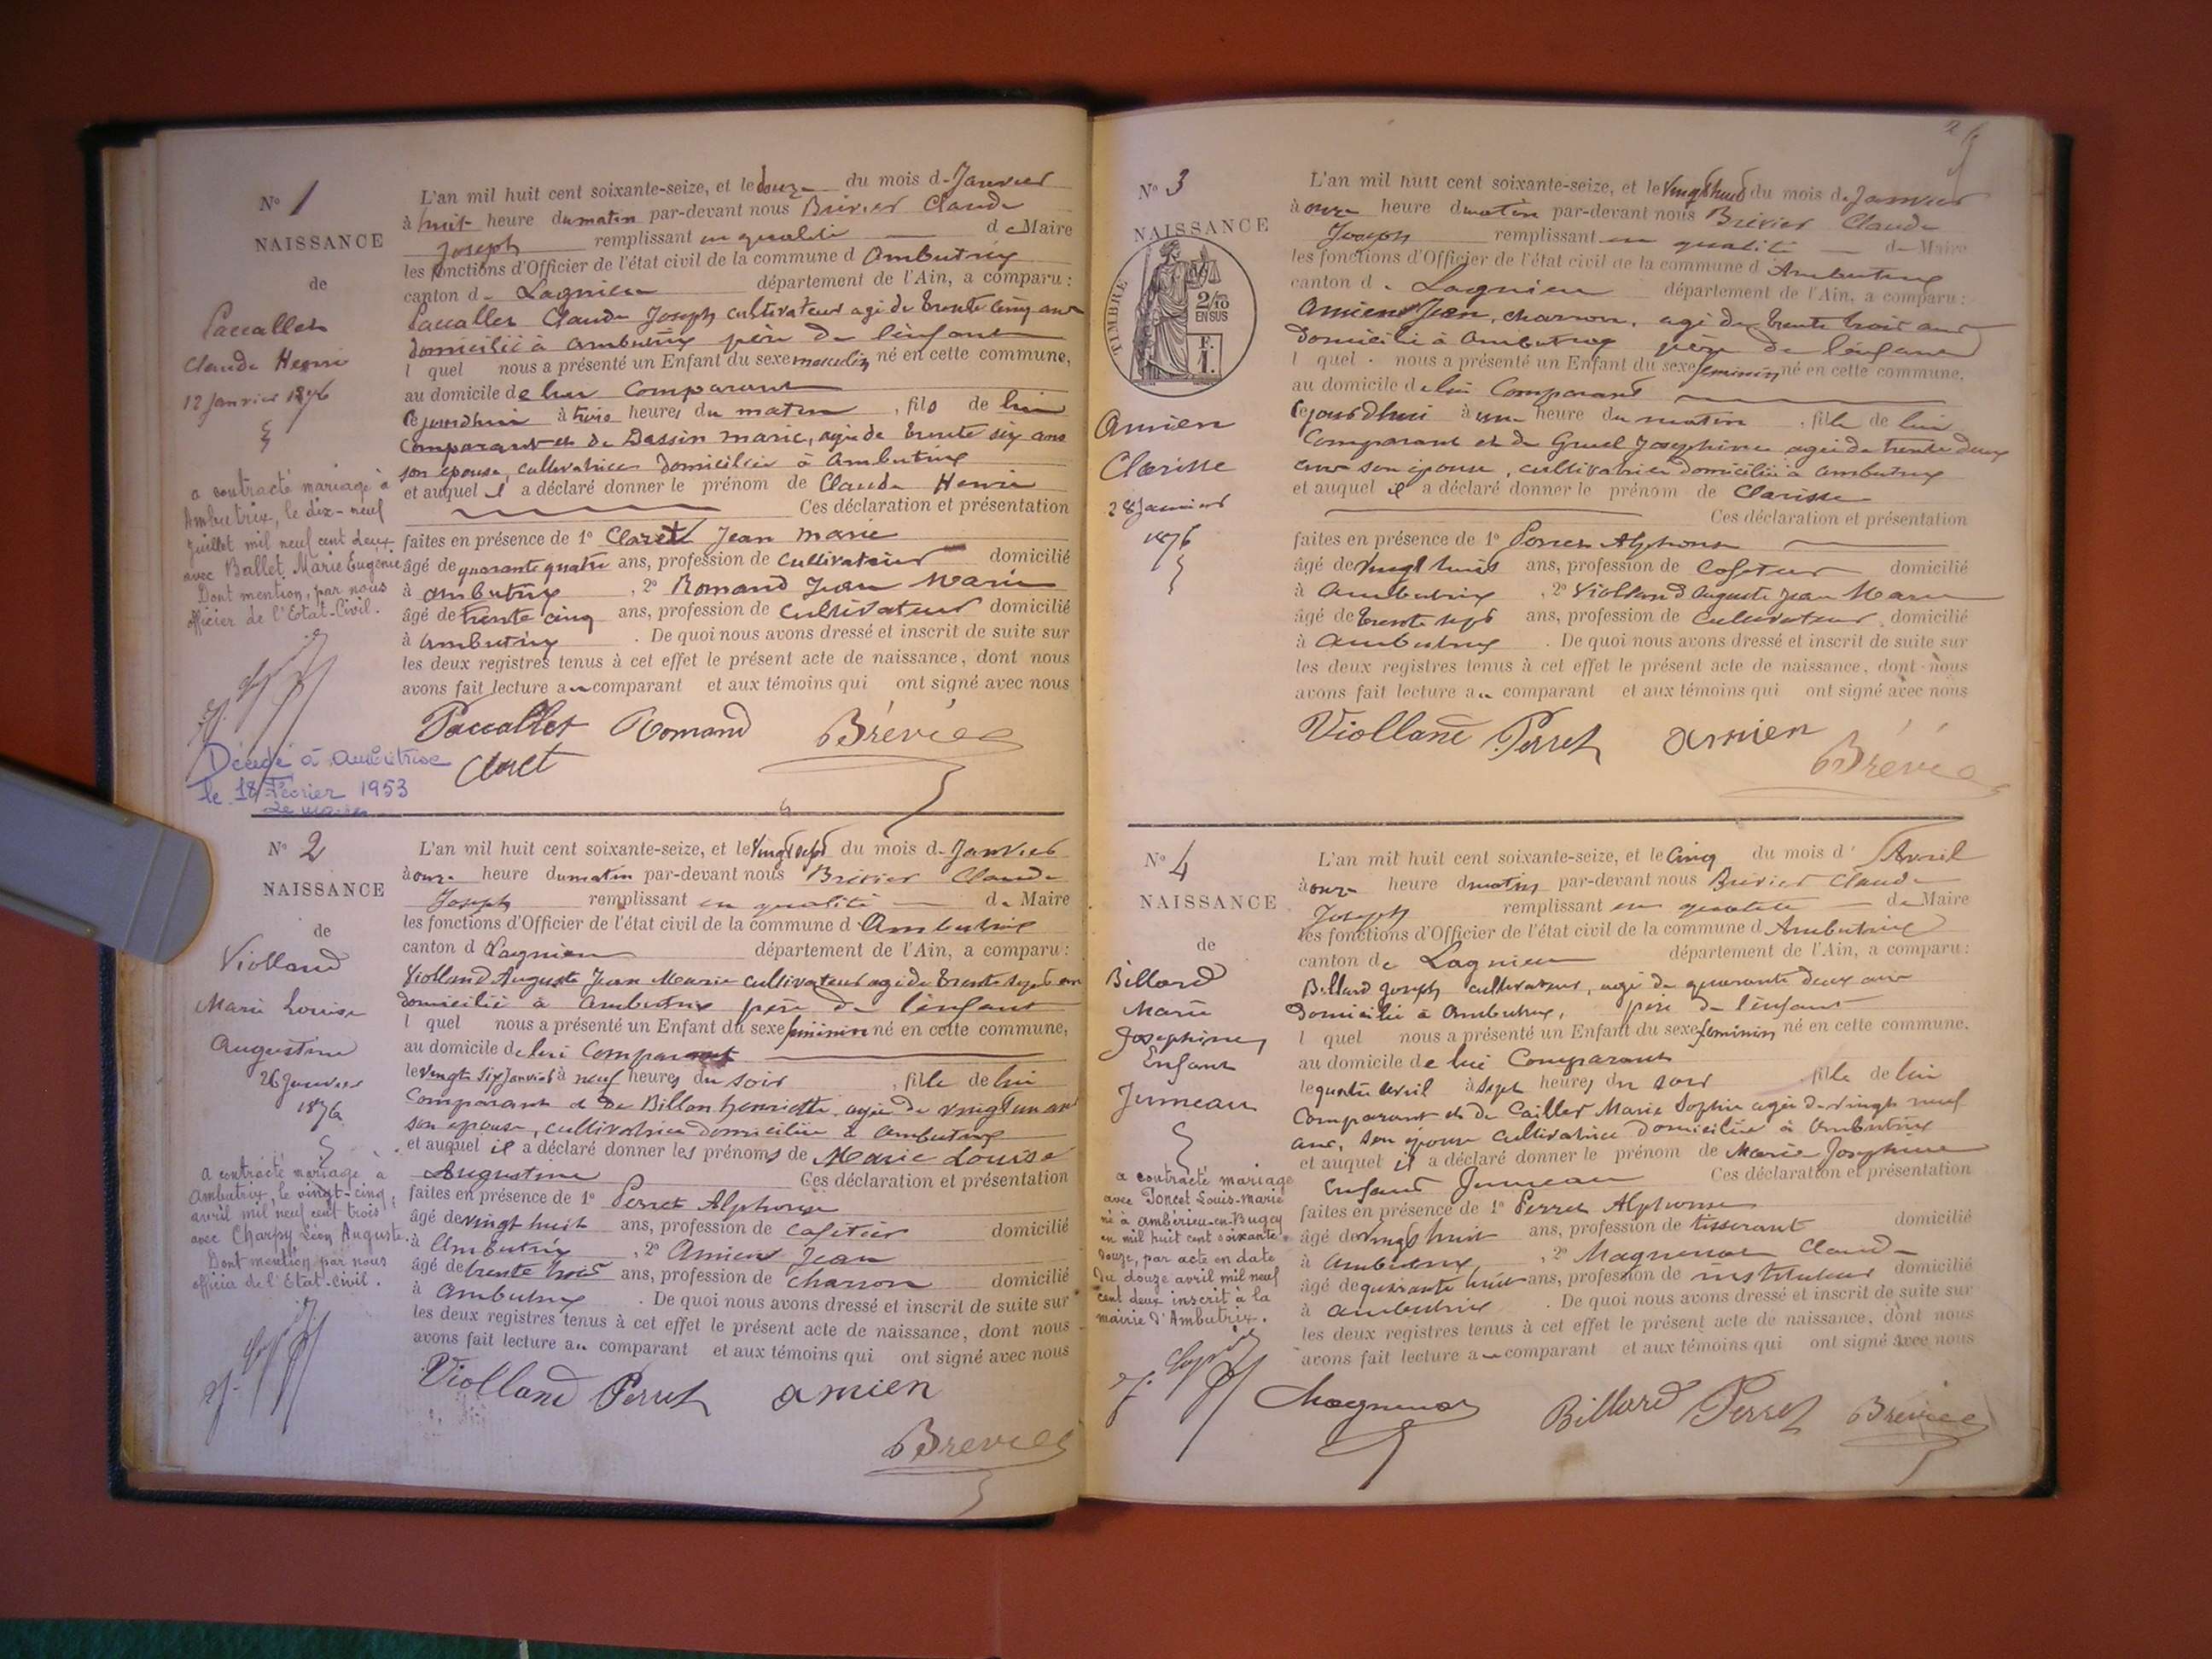 N° 1
NAISSANCE
de
Paccallet
Claude Henri
12 Janvier 1876
a contracté mariage à
Ambutrix, le dix-neuf
Juillet mil neuf cent deux
avec Ballet Marie Eugénie
Dont mention, par nous
officier de l'Etat-Civil.
Décédé à Ambutrix
le 18 Février 1953
Le maire
L'an mil huit cent soixante-seize, et le douze du mois de Janvier
à huit heure du matin par-devant nous Brévier Claude
Joseph remplissant en qualité de Maire
les fonctions d'Officier de l'état civil de la commune d Ambutrix
canton de Lagnieu département de l'Ain, a comparu :
Paccallet Claude Joseph cultivateur agé de trente cinq ans
domicilié à Ambutrix père de l'enfant
l quel nous a présenté un Enfant du sexe masculin né en cette commune,
au domicile de lui Comparant
Cejourdhui à trois heures du matin , fils de lui
Comparant et de Dassin Marie, agée de trente six ans
son épouse, cultivatrice domiciliée à Ambutrix
et auquel il a déclaré donner le prénom de Claude Henri
Ces déclaration et présentation
faites en présence de 1° Claret Jean Marie
âgé de quarante quatre ans, profession de Cultivateur domicilié
à Ambutrix , 2° Romand Jean Marie
âgé de trente cinq ans, profession de Cultivateur domicilié
à Ambutrix . De quoi nous avons dressé et inscrit de suite sur
les deux registres tenus à cet effet le présent acte de naissance, dont nous
avons fait lecture au comparant et aux témoins qui ont signé avec nous
Paccallet Romand Brévier
Claret
N° 2
NAISSANCE
de
Violland
Marie Louise
Augustine
26 Janvier
1876
a contracté mariage à
Ambutrix, le vingt-cinq
avril mil neuf cent trois
avec Charpy Léon Auguste.
Dont mention par nous
officier de l'Etat-civil.
L'an mil huit cent soixante-seize, et le Vingt sept du mois de Janvier
à onze heure du matin par-devant nous Brévier Claude
Joseph remplissant en qualité de Maire
les fonctions d'Officier de l'état civil de la commune d Ambutrix
canton d Lagnieu département de l'Ain, a comparu :
Violland Auguste Jean Marie cultivateur agé de trente sept ans
domicilié à Ambutrix père de l'enfant
l quel nous a présenté un Enfant du sexe féminin né en cette commune,
au domicile de lui Comparant
le vingt six Janvier à neuf heures du soir , fille de lui
Comparant et de Billon henriette agée de vingt un ans
son épouse, cultivatrice domiciliée à Ambutrix
et auquel il a déclaré donner les prénoms de Marie Louise
Augustine Ces déclaration et présentation
faites en présence de 1° Perret Alphonse
âgé de vingt huit ans, profession de Cafetier domicilié
à Ambutrix , 2° Amien Jean
âgé de trente trois ans, profession de Charron domicilié
à Ambutrix . De quoi nous avons dressé et inscrit de suite sur
les deux registres tenus à cet effet le présent acte de naissance, dont nous
avons fait lecture au comparant et aux témoins qui ont signé avec nous
Violland Perret Amien
Brévier
N° 3
NAISSANCE
TIMBRE
2/10
EN SUS
F.
1.
Amien
Clarisse
28 Janvier
1876
L'an mil huit cent soixante-seize, et le Vingt huit du mois de Janvier
à onze heure du matin par-devant nous Brévier Claude
Joseph remplissant en qualité de Maire
les fonctions d'Officier de l'état civil de la commune d Ambutrix
canton de Lagnieu département de l'Ain, a comparu :
Amien Jean, charron, agé de trente trois ans
domicilié à Ambutrix père de l'enfant
l quel nous a présenté un Enfant du sexe féminin né en cette commune,
au domicile de lui Comparant
Cejourdhui à une heure du matin , fille de lui
Comparant et de Gruel Josephine agée de trente deux
ans son épouse, cultivatrice domiciliée à Ambutrix
et auquel il a déclaré donner le prénom de Clarisse
Ces déclaration et présentation
faites en présence de 1° Perret Alphonse
âgé de vingt huit ans, profession de Cafetier domicilié
à Ambutrix , 2° Violland Auguste Jean Marie
âgé de trente sept ans, profession de Cultivateur domicilié
à Ambutrix . De quoi nous avons dressé et inscrit de suite sur
les deux registres tenus à cet effet le présent acte de naissance, dont nous
avons fait lecture au comparant et aux témoins qui ont signé avec nous
Violland Perret Amien
Brévier
N° 4
NAISSANCE
de
Billard
Marie
Josephine
Enfant
Jumeau
a contracté mariage
avec Poncet Louis-Marie
né à Ambérieu-en-Bugey
en mil huit cent soixante-
douze, par acte en date
du douze avril mil neuf
cent deux inscrit à la
mairie d'Ambutrix.
L'an mil huit cent soixante-seize, et le Cinq du mois d' Avril
à onze heure du matin par-devant nous Brévier Claude
Joseph remplissant en qualité de Maire
les fonctions d'Officier de l'état civil de la commune d Ambutrix
canton de Lagnieu département de l'Ain, a comparu :
Billard Joseph cultivateur, agé de quarante deux ans
Domicilié à Ambutrix, père de l'enfant
l quel nous a présenté un Enfant du sexe féminin né en cette commune.
au domicile de lui Comparant
le quatre avril à sept heures du soir , fille de lui
Comparant et de Caillet Marie Sophie agée de vingt neuf
ans, son épouse cultivatrice domiciliée à Ambutrix
et auquel il a déclaré donner le prénom de Marie Josephine
Enfant Jumeau Ces déclaration et présentation
faites en présence de 1° Perret Alphonse
âgé de vingt huit ans, profession de tisserant domicilié
à Ambutrix , 2° Magnenot Claude
âgé de quarante huit ans, profession de instituteur domicilié
à Ambutrix . De quoi nous avons dressé et inscrit de suite sur
les deux registres tenus à cet effet le présent acte de naissance, dont nous
avons fait lecture au comparant et aux témoins qui ont signé avec nous
Magnenot Billard Perret Brévier